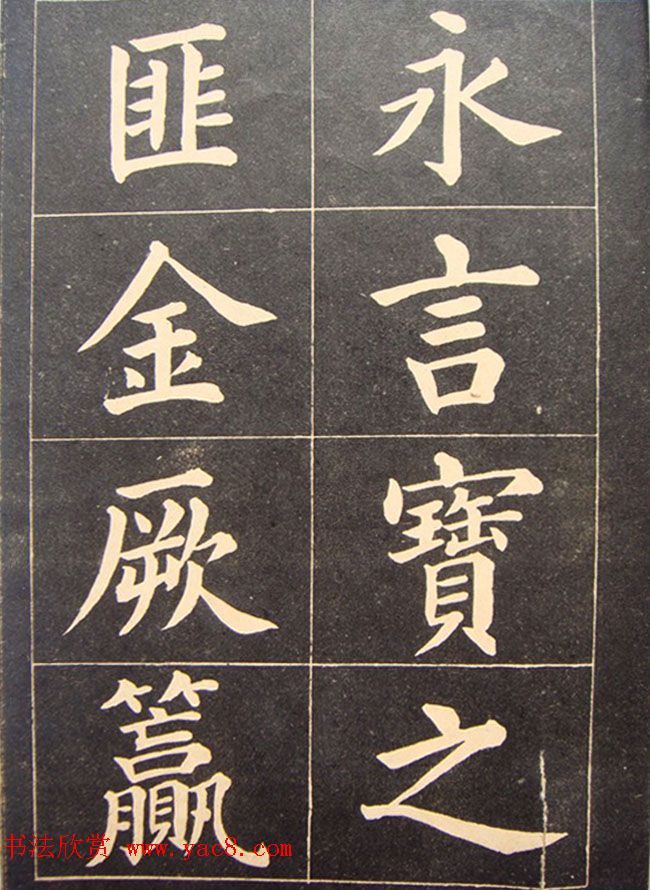 永言寶之
匪金厥籝
书法欣赏 www.yac8.com